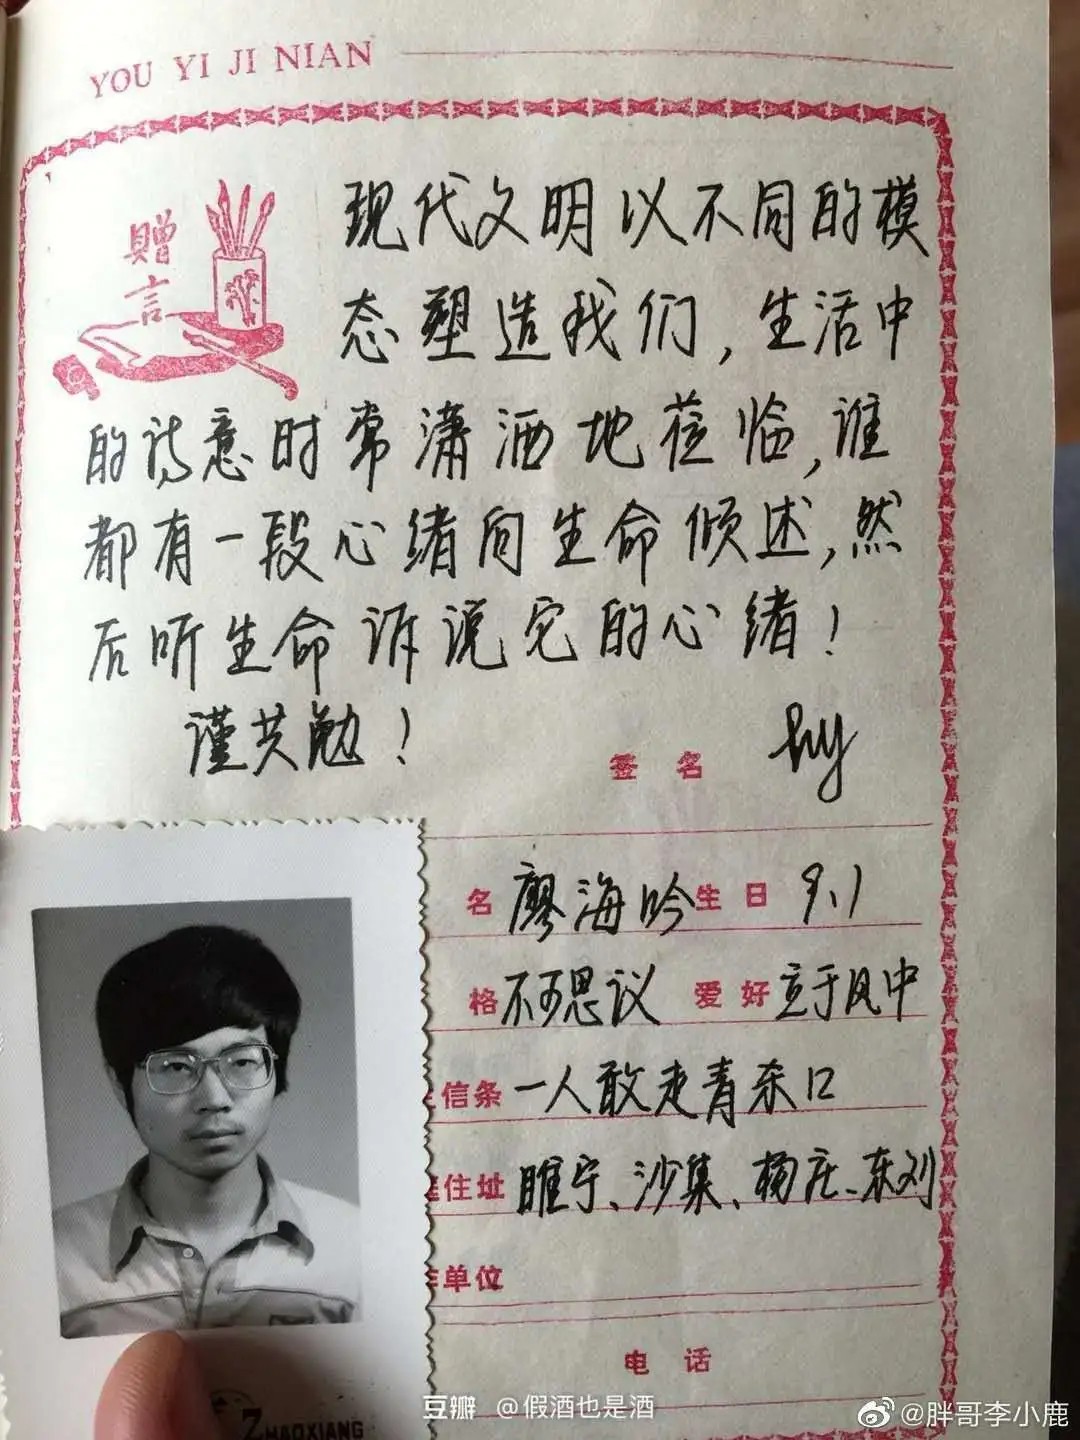 YOU YI JI NIAN
赠言
现代文明以不同的模
态塑造我们,生活中
的诗意时常潇洒地莅临,谁
都有一段心绪向生命倾述,然
后听生命诉说它的心绪!
谨共勉!
签名 hy
名 廖海吟 生日 9.1
格 不可思议 爱好 立于风中
信条 一人敢走青杀口
住址 睢宁、沙集、杨庄、东刘
单位
电话
ZHAOXIANG
豆瓣 @假酒也是酒
@胖哥李小鹿